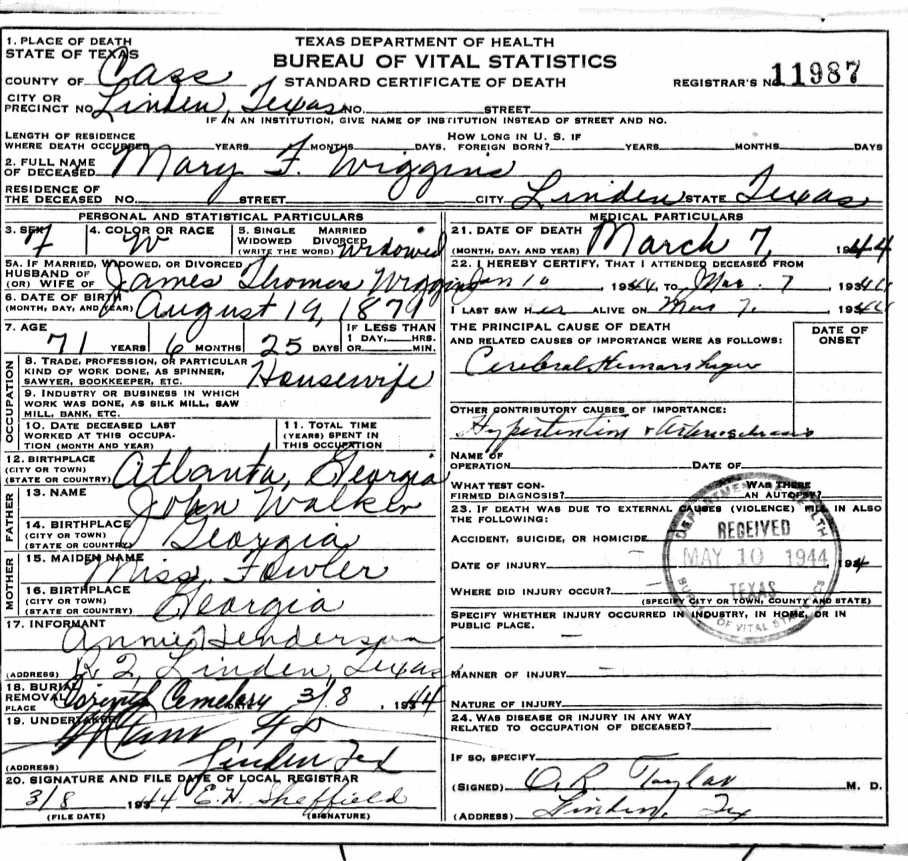 TEXAS DEPARTMENT OF HEALTH
BUREAU OF VITAL STATISTICS
STANDARD CERTIFICATE OF DEATH
REGISTRAR'S NO. 11987
1. PLACE OF DEATH
STATE OF TEXAS
COUNTY OF Cass
CITY OR
PRECINCT NO. Linden, Texas NO. STREET
IF IN AN INSTITUTION, GIVE NAME OF INSTITUTION INSTEAD OF STREET AND NO.
LENGTH OF RESIDENCE
WHERE DEATH OCCURRED YEARS MONTHS DAYS.
HOW LONG IN U. S. IF
FOREIGN BORN? YEARS MONTHS DAYS
2. FULL NAME
OF DECEASED Mary F. Wiggins
RESIDENCE OF
THE DECEASED NO. STREET CITY Linden STATE Texas
PERSONAL AND STATISTICAL PARTICULARS
3. SEX F
4. COLOR OR RACE W
5. SINGLE MARRIED
WIDOWED DIVORCED
(WRITE THE WORD) Widowed
5A. IF MARRIED, WIDOWED, OR DIVORCED
HUSBAND OF
(OR) WIFE OF James Thomas Wiggins
6. DATE OF BIRTH
(MONTH, DAY, AND YEAR) August 19, 187
7. AGE
71 YEARS 6 MONTHS 25 DAYS
IF LESS THAN
1 DAY, HRS.
OR MIN.
OCCUPATION
8. TRADE, PROFESSION, OR PARTICULAR
KIND OF WORK DONE, AS SPINNER,
SAWYER, BOOKKEEPER, ETC. Housewife
9. INDUSTRY OR BUSINESS IN WHICH
WORK WAS DONE, AS SILK MILL, SAW
MILL, BANK, ETC.
10. DATE DECEASED LAST
WORKED AT THIS OCCUPA-
TION (MONTH AND YEAR)
11. TOTAL TIME
(YEARS) SPENT IN
THIS OCCUPATION
12. BIRTHPLACE
(CITY OR TOWN)
(STATE OR COUNTRY) Atlanta, Georgia
FATHER
13. NAME John Walker
14. BIRTHPLACE
(CITY OR TOWN)
(STATE OR COUNTRY) Georgia
MOTHER
15. MAIDEN NAME Miss, Fowler
16. BIRTHPLACE
(CITY OR TOWN)
(STATE OR COUNTRY) Georgia
17. INFORMANT
Annie Henderson
(ADDRESS) R 2, Linden, Texas
18. BURIAL
REMOVAL
PLACE Cemetary DATE 3/8, 1944
19. UNDERTAKER
(ADDRESS) Linden Tex
20. SIGNATURE AND FILE DATE OF LOCAL REGISTRAR
3/8 1944 E.H. Sheffield
(FILE DATE) (SIGNATURE)
MEDICAL PARTICULARS
21. DATE OF DEATH
(MONTH, DAY, AND YEAR) March 7, 1944
22. I HEREBY CERTIFY, THAT I ATTENDED DECEASED FROM
Jan 10 1944 TO Mar. 7 1944
I LAST SAW Her ALIVE ON Mar 7, 1944
THE PRINCIPAL CAUSE OF DEATH
AND RELATED CAUSES OF IMPORTANCE WERE AS FOLLOWS:
DATE OF
ONSET
Cerebral
OTHER CONTRIBUTORY CAUSES OF IMPORTANCE:
Hypertention +
NAME OF
OPERATION DATE OF
WHAT TEST CON-
FIRMED DIAGNOSIS? WAS THERE
AN AUTOPSY?
23. IF DEATH WAS DUE TO EXTERNAL CAUSES (VIOLENCE) FILL IN ALSO
THE FOLLOWING:
ACCIDENT, SUICIDE, OR HOMICIDE
DATE OF INJURY 194
WHERE DID INJURY OCCUR?
(SPECIFY CITY OR TOWN, COUNTY AND STATE)
SPECIFY WHETHER INJURY OCCURRED IN INDUSTRY, IN HOME, OR IN
PUBLIC PLACE.
MANNER OF INJURY
NATURE OF INJURY
24. WAS DISEASE OR INJURY IN ANY WAY
RELATED TO OCCUPATION OF DECEASED?
IF SO, SPECIFY
(SIGNED) O. R. Taylor M. D.
(ADDRESS) Linden, Tex
DEPARTMENT OF HEALTH
RECEIVED
MAY 10 1944
TEXAS
BUREAU OF VITAL STATISTICS